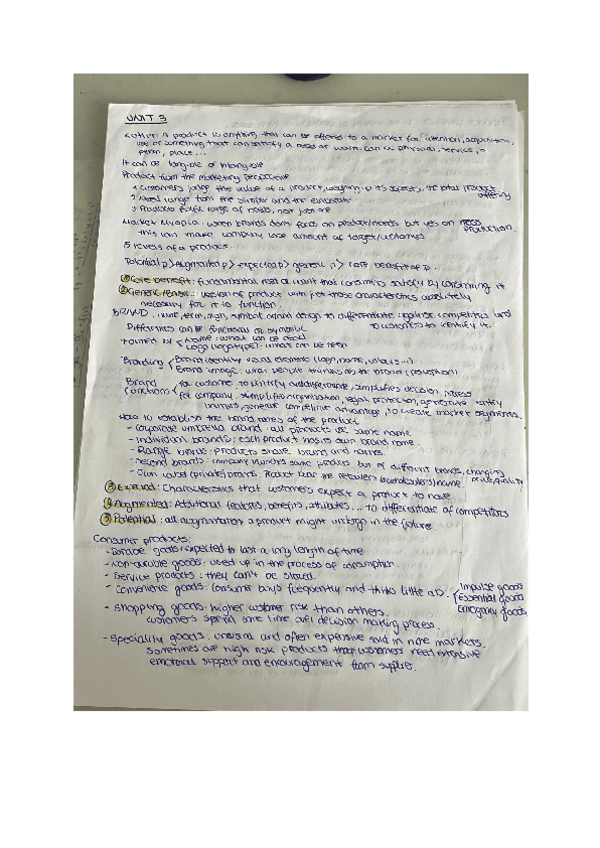 UNIT 3
Kotler: A product is anything that can be offered to a market for attention, acquisition,
use or something that can satisfy a need or want. Can be physical, service,
person, place...
It can be tangible or intangible
Product from the marketing perspective
Customers judge the value of a product, weighing up its the total product offering
Need range from the simpler and the elaborate
Products fulfil range of needs, not just one
Market Myopia: when brands don't focus on product/needs but on mass production.
this can make company lose amount of target/customers
5 levels of a product.
Potential p > Augmented p > expected p > generic p > core benefit of p.
① Core benefit: fundamental need or want that consumers satisfy by consuming it
② Generic : version of product with just those characteristics absolutely
necessary for it to function.
BRAND: name, term, sign, symbol design to differentiate against competitors and
to customers to identify it.
Differences can be functional or symbolic
Formed by { Name: what can be read
Logo (logotype): what can be seen
Branding { Brand identity: visual elements (logo, name, colours...)
Brand image: what people think about the brand (perception)
Brand functions { for customer: to identify and differentiate, simplifies decision process
for company: simplifies organisation, legal protection,
generate competitive advantage, to create market segments.
How to establish the brand names of the product
- Corporate umbrella brand: all products use same name
- Individual brands: each product has its own brand name.
- Range brands: products share brand and names
- Second brands: company launches same product but of different brands, changing
- Own label (private) brand: Product bear the retailers (wholesalers) name
③ Expected: Characteristics that customers expect a product to have
④ Augmented: Additional features, benefits, attributes... to differentiate of competitors
⑤ Potential: all augmentation a product might undergo in the future
Consumer products:
- goods: expected to last a long length of time
- Non-durable goods: used up in the process of consumption.
- Service products: they can't be stored.
- Convenience goods: consumer buys frequently and thinks little { Impulse goods
Essential goods
Emergency goods
- Shopping goods: higher customer risk than others.
customers spend some time over decision making process.
- Speciality goods: unusual and often expensive sold in niche markets.
sometimes are high risk products that customers need extensive
emotional support and encouragement from supplier.